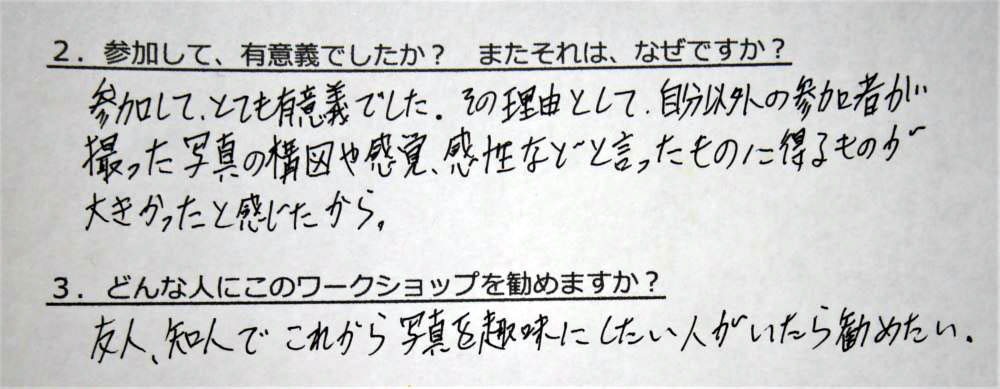 2．参加して、有意義でしたか？　またそれは、なぜですか？
参加して、とても有意義でした。その理由として、自分以外の参加者が
撮った写真の構図や感覚、感性などと言ったものに得るものが
大きかったと感じたから。
3．どんな人にこのワークショップを勧めますか？
友人、知人でこれから写真を趣味にしたい人がいたら勧めたい。